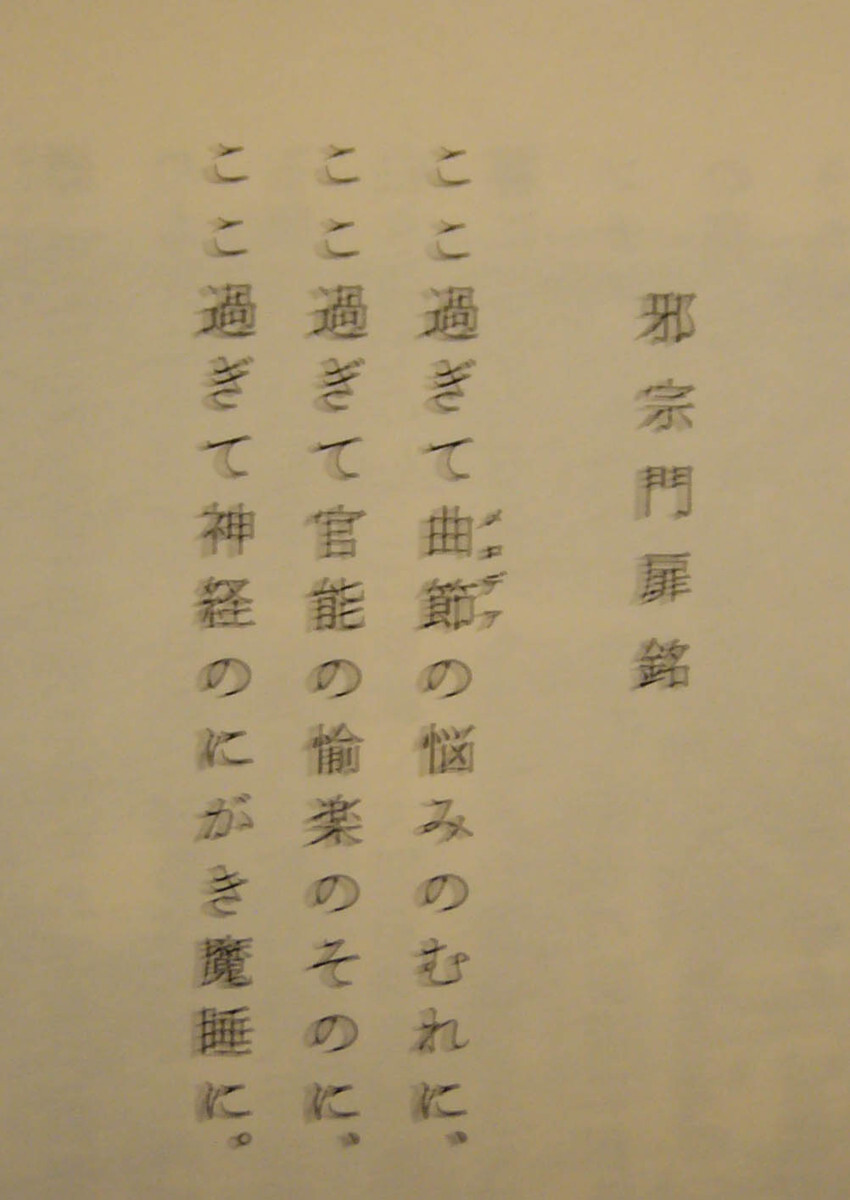 邪宗門扉銘
ここ過ぎて曲節の悩みのむれに、
メロデア
ここ過ぎて官能の愉楽のそのに、
ここ過ぎて神経のにがき魔睡に。